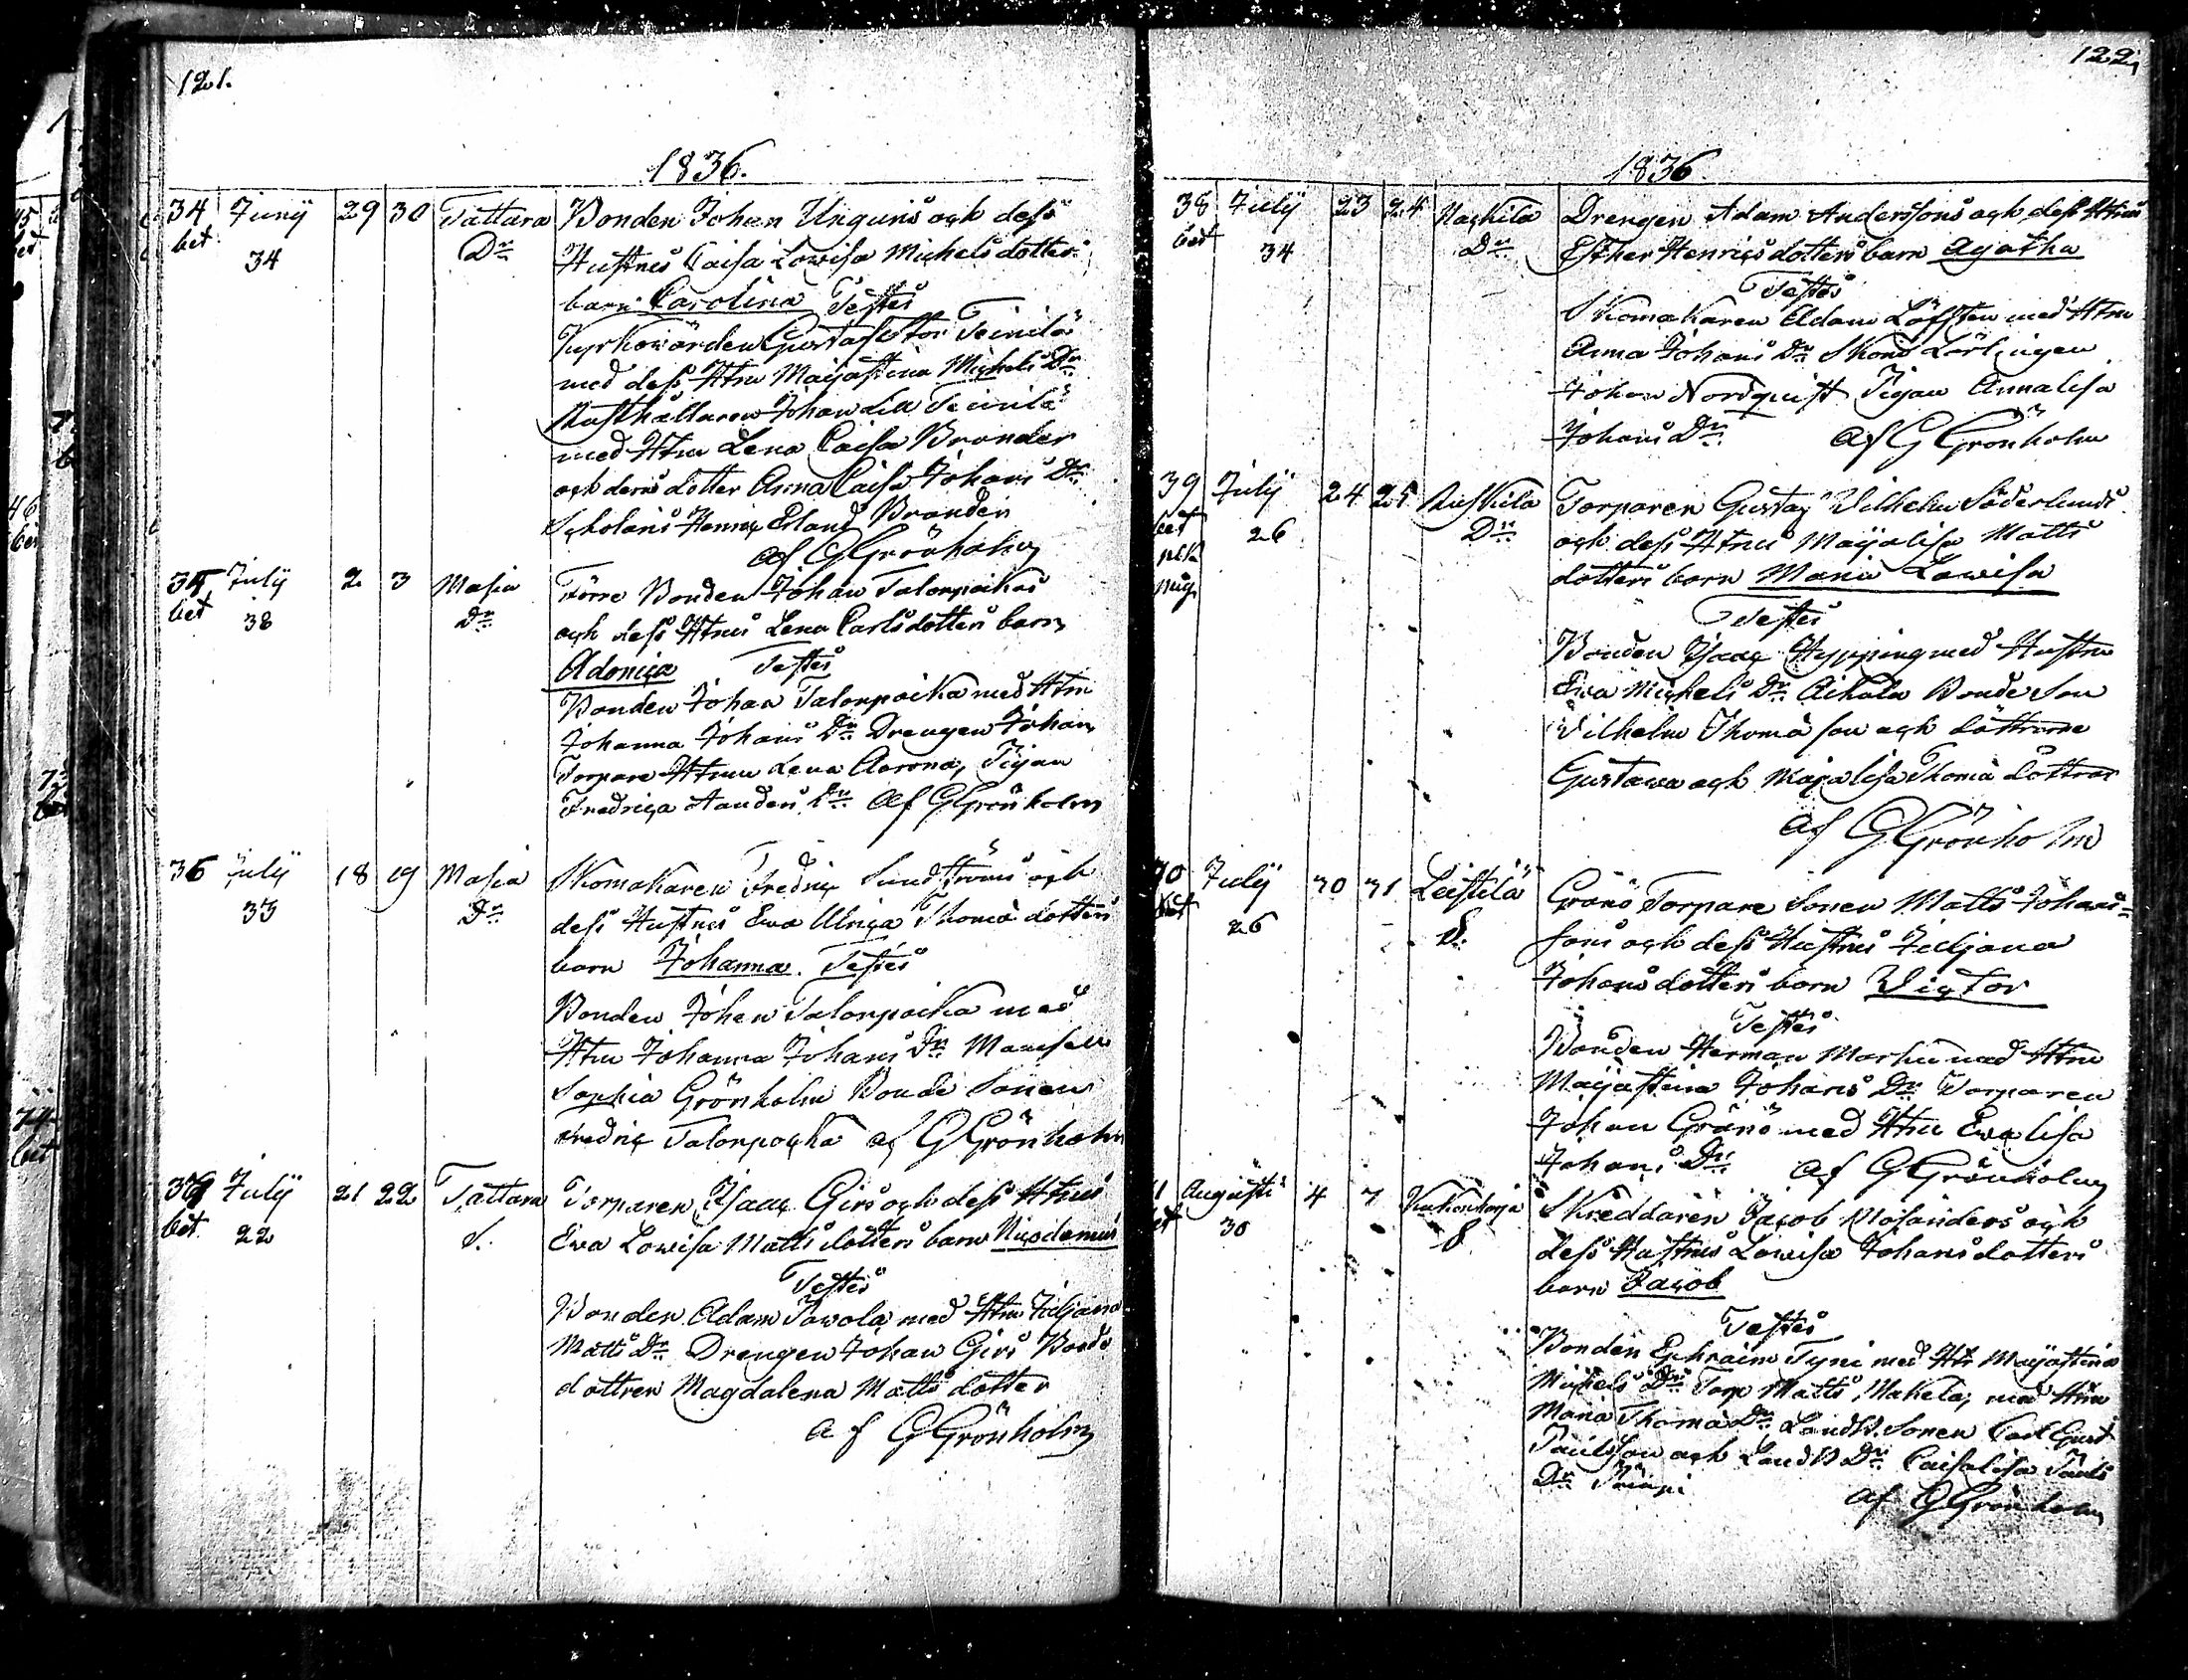 121.
1836.
34 Junÿ 29 30 Tattara Bonden Johan Unguris och dess
bet 34 Dr Hustrus Caisa Lowisa Michelsdotters
barn Carolina Testes
Kyrkowärden Gustaf Stor Teinilä
med dess Htru Majastina Michels Dr
Rusthållaren Johan Lill Teinilä
med Htru Lena Caisa Brander
och deras dotter Anna Caisa Johans Dr
Scholaris Henric Erland Brander
af G Grönholm
35 July 2 3 Masia Förre Bonden Johan Talonpoikas
bet 38 Dr och dess Htrus Lena Carlsdotters barn
Adonica Testes
Bonden Johan Talonpoika med Htru
Johanna Johans Dr Drengen Johan
Torpare Htrun Lena Aarona, Pigan
Fredrica Anders Dr af G Grönholm
36 July 18 19 Masia Skomakaren Fredric Sundströms och
33 Dr dess Hustrus Ewa Ulrica Thomä dotters
barn Johanna. Testes
Bonden Johan Talonpoika med
Htru Johanna Johans Dr Mamsell
Sophia Grönholm Bonde Sonen
Fredric Talonpoika af G Grönholm
37 July 21 22 Tattara Torparen Isaac Girs och dess Htrus
bet 22 S. Ewa Lowisa Matts dotters barn Nicodemus
Testes
Bonden Adam Pawola med Htru Juljana
Matts Dr Drengen Johan Girs Bonde
dottren Magdalena Matts dotter
af G Grönholm
122,
1836.
38 July 23 24 Drengen Adam Anderssons och dess Htrus
bet 34 Dr Esther Henricsdotters barn Agatha
Testes
Skomakaren Adam Löfsten med Htru
Anna Johans Dr Skom Lärlingen
Johan Nordquist Pigan Annalisa
Johans Dr af G Grönholm
39 July 24 25 Torparen Gustaf Wilhelm Söderlunds
bet 26 Dr och dess Htrus Majalisa Matts
dotters barn Maria Lowisa
Testes
Bonden Isaac Hypping med Hustru
Ewa Michels Dr Aihala Bonde Son
Wilhelm Thomä son och döttrarne
Gustawa och Majalisa Thomä döttrar
af G Grönholm
40 July 30 31 Leistilä Gränö Torpare Sonen Matts Johans-
bet 26 S. sons och dess Hustrus Juljana
Johans dotters barn Victor
Testes
Bonden Herman Marku med Htru
Majastina Johans Dr Torparen
Johan Gränö med Htru Ewa lisa
Johans Dr af G Grönholm
Augusti 4 7 Kaukenharja Skreddaren Jacob Rosanders och
30 S dess Hustrus Lowisa Johansdotters
barn Jacob
Testes
Bonden Ephraim Tyni med Htr Majastina
Michels Dr Torp Matts Makela, med Htru
Maria Thomä Dr Landb. Sonen Carl Gust
Paulsson och Landb Dr Caisalisa Pauls
Dr
af G Grönholm